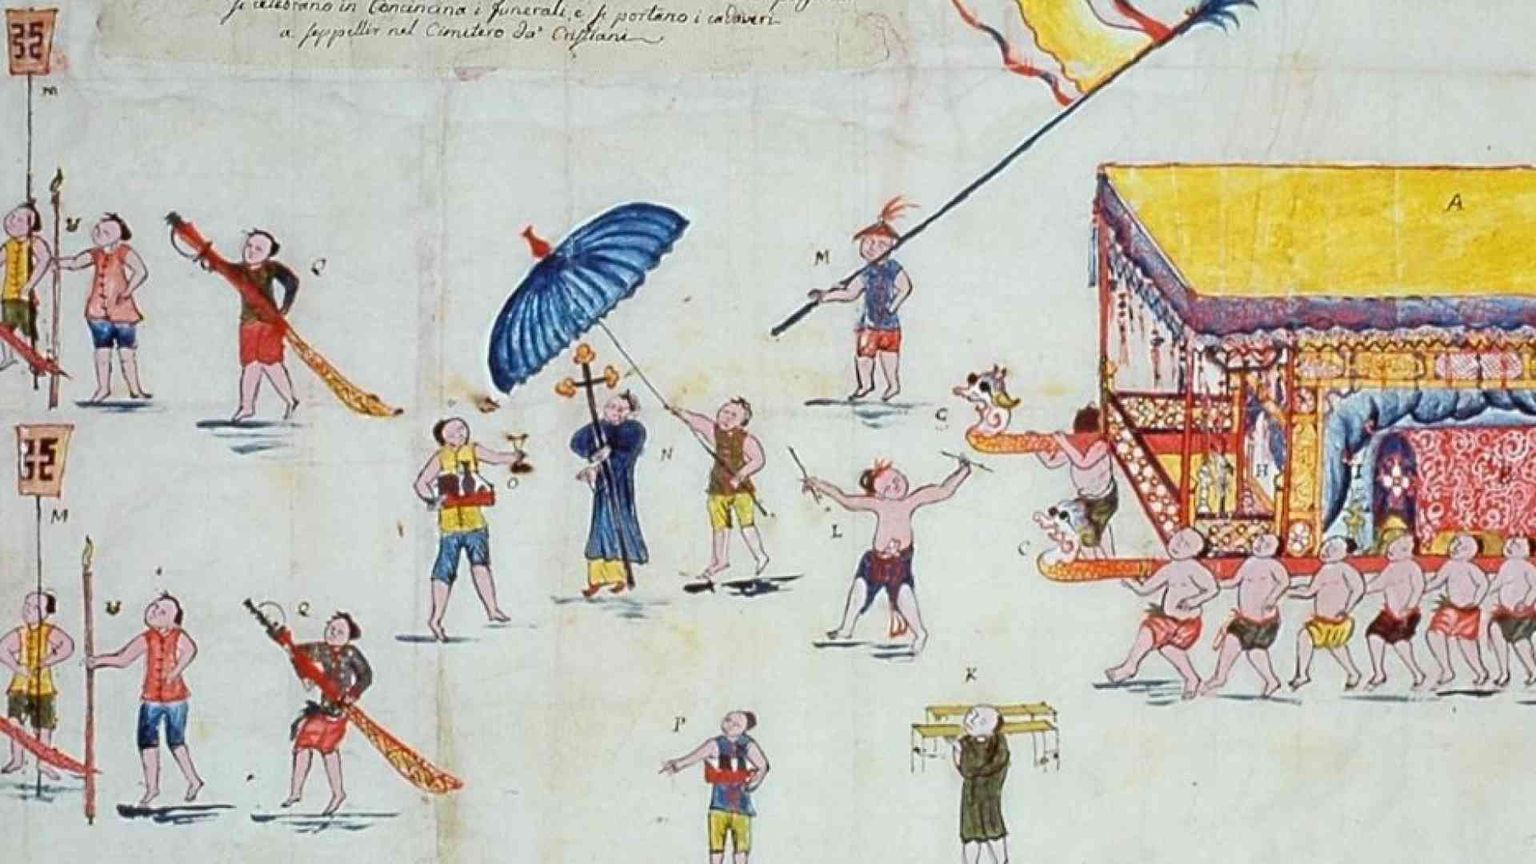 si celebrano in Concincina i funerali, e si portano i cadaveri
a seppellir nel Cimitero da' Cristiani
M
U
Q
A
M
N
O
G
L
H
I
C
M
U
Q
K
P